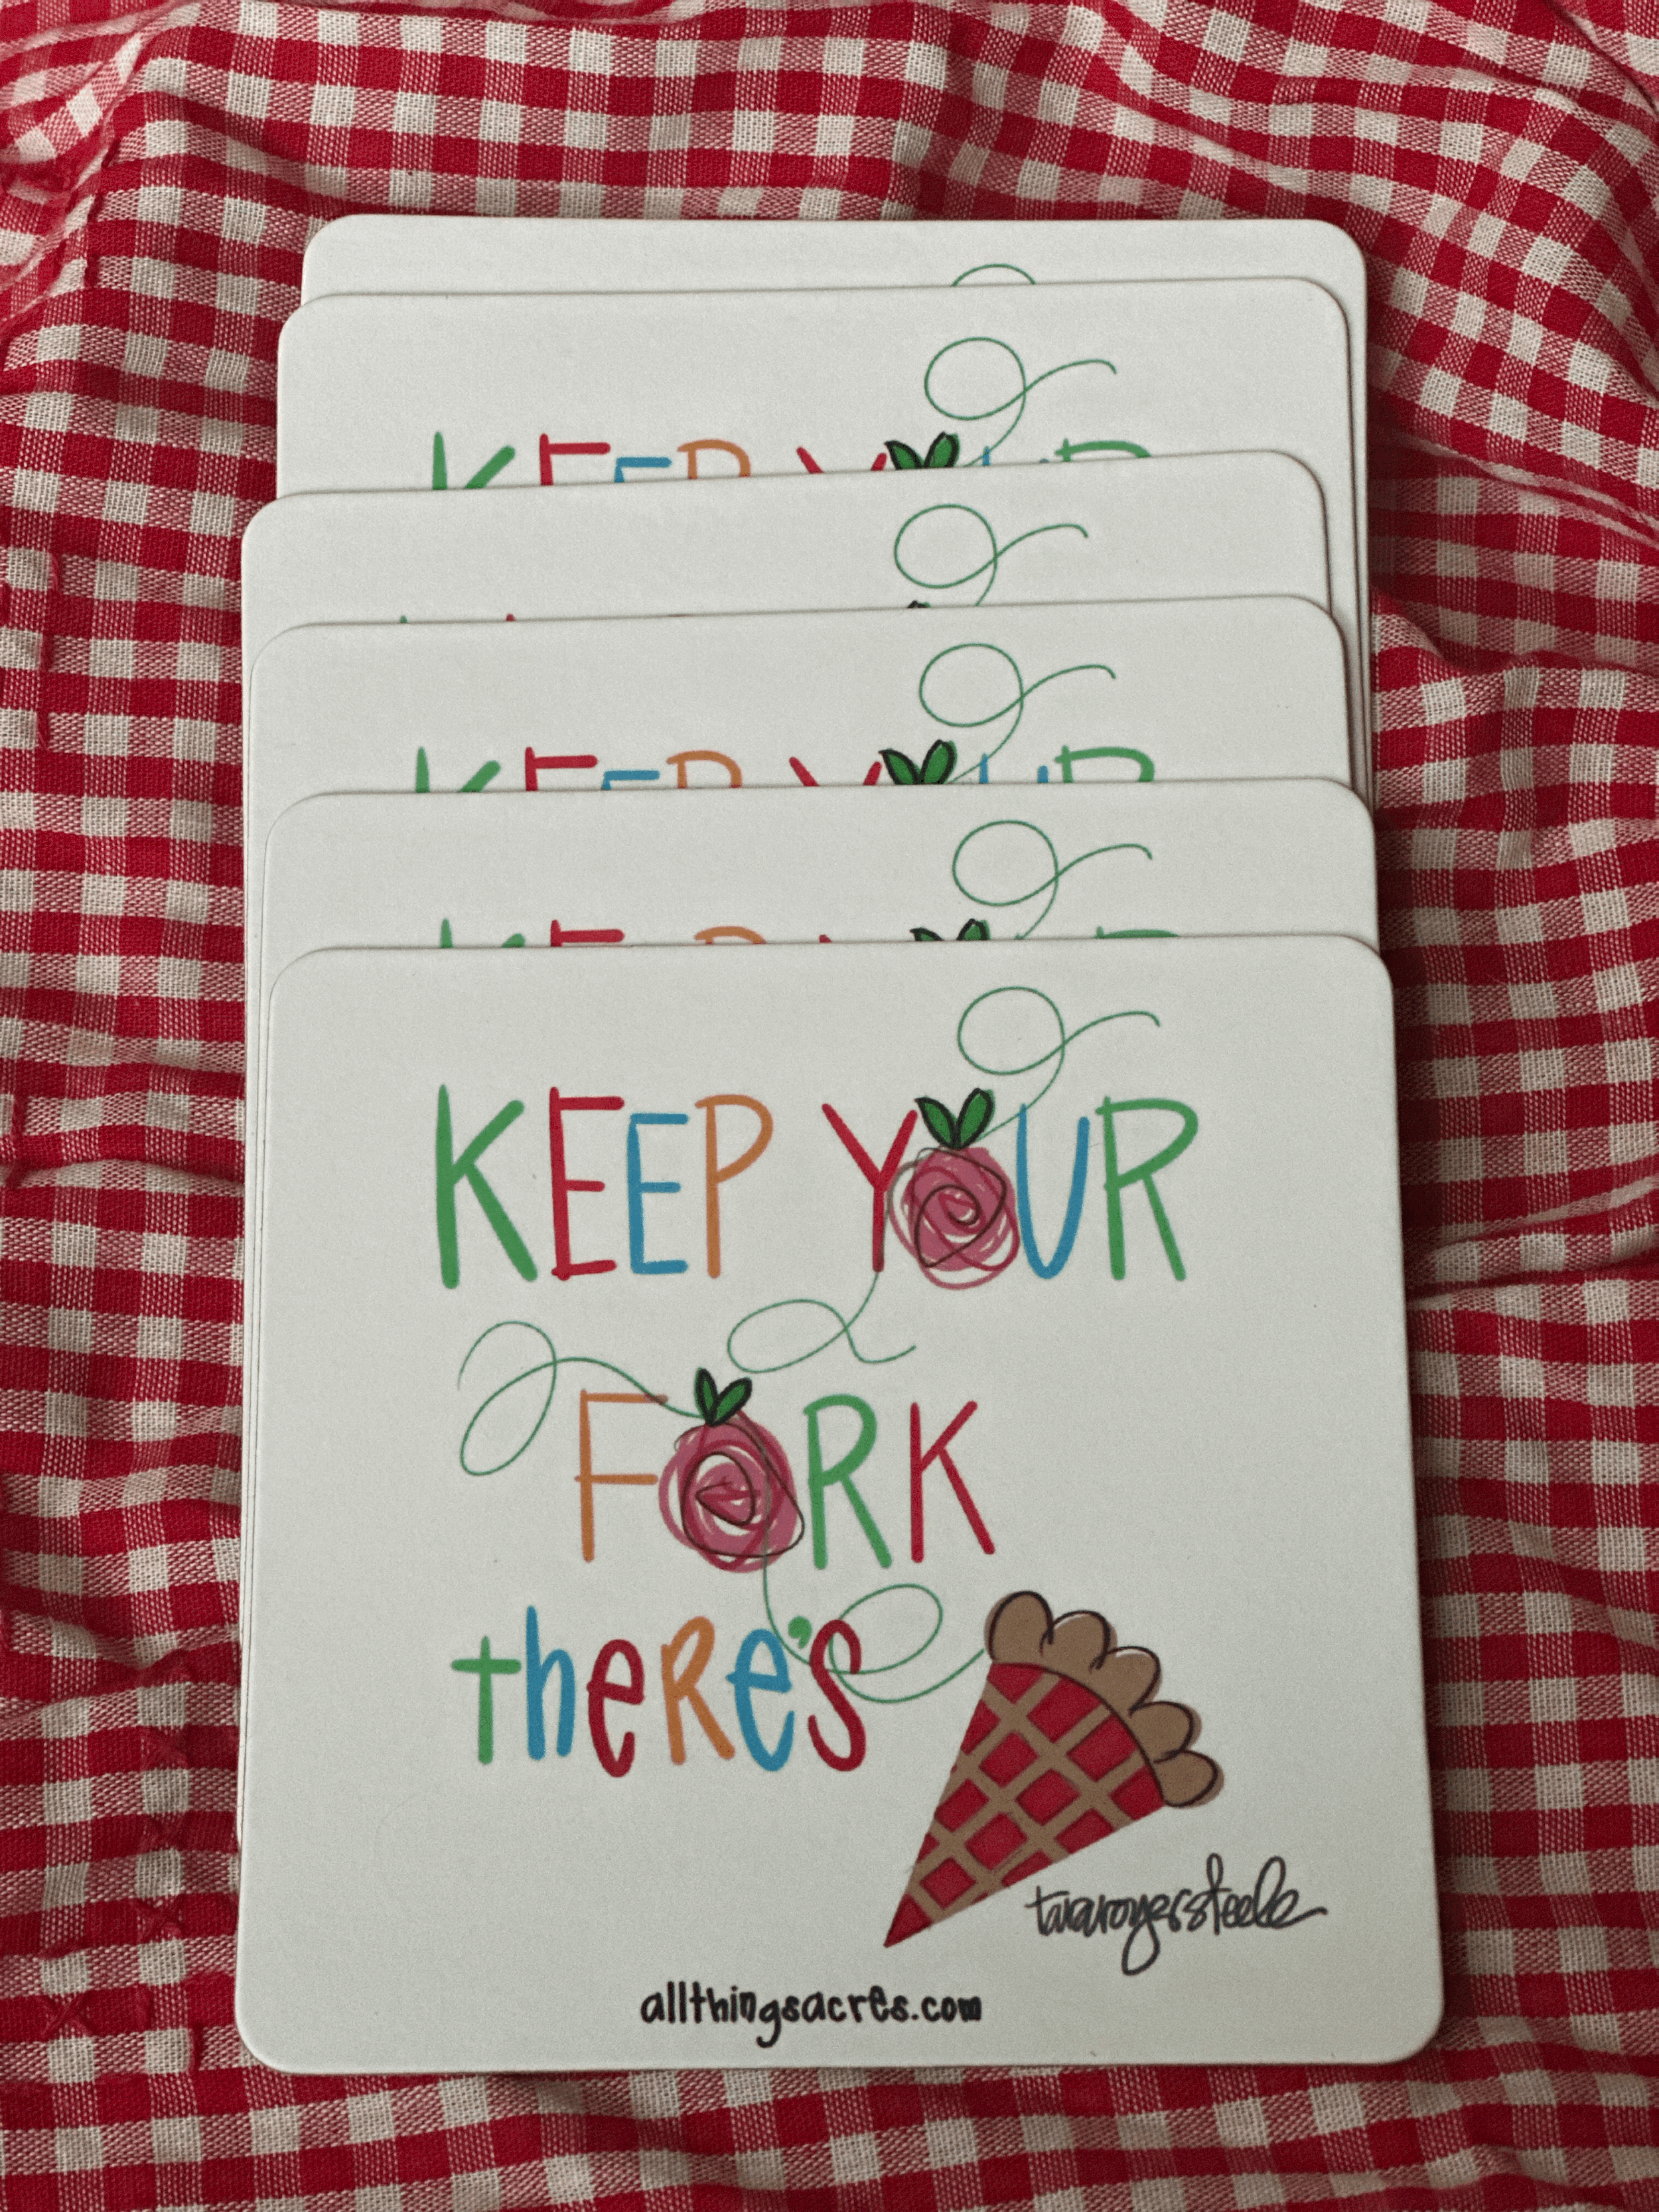 KEEP YOUR
KEEP YOUR
KEEP YOUR
KEEP YOUR
FORK
theRe's
tararoyersteele
allthingsacres.com